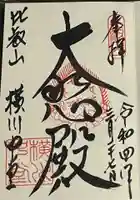 奉拝
令和四年
大悲殿
比叡山
横川中堂